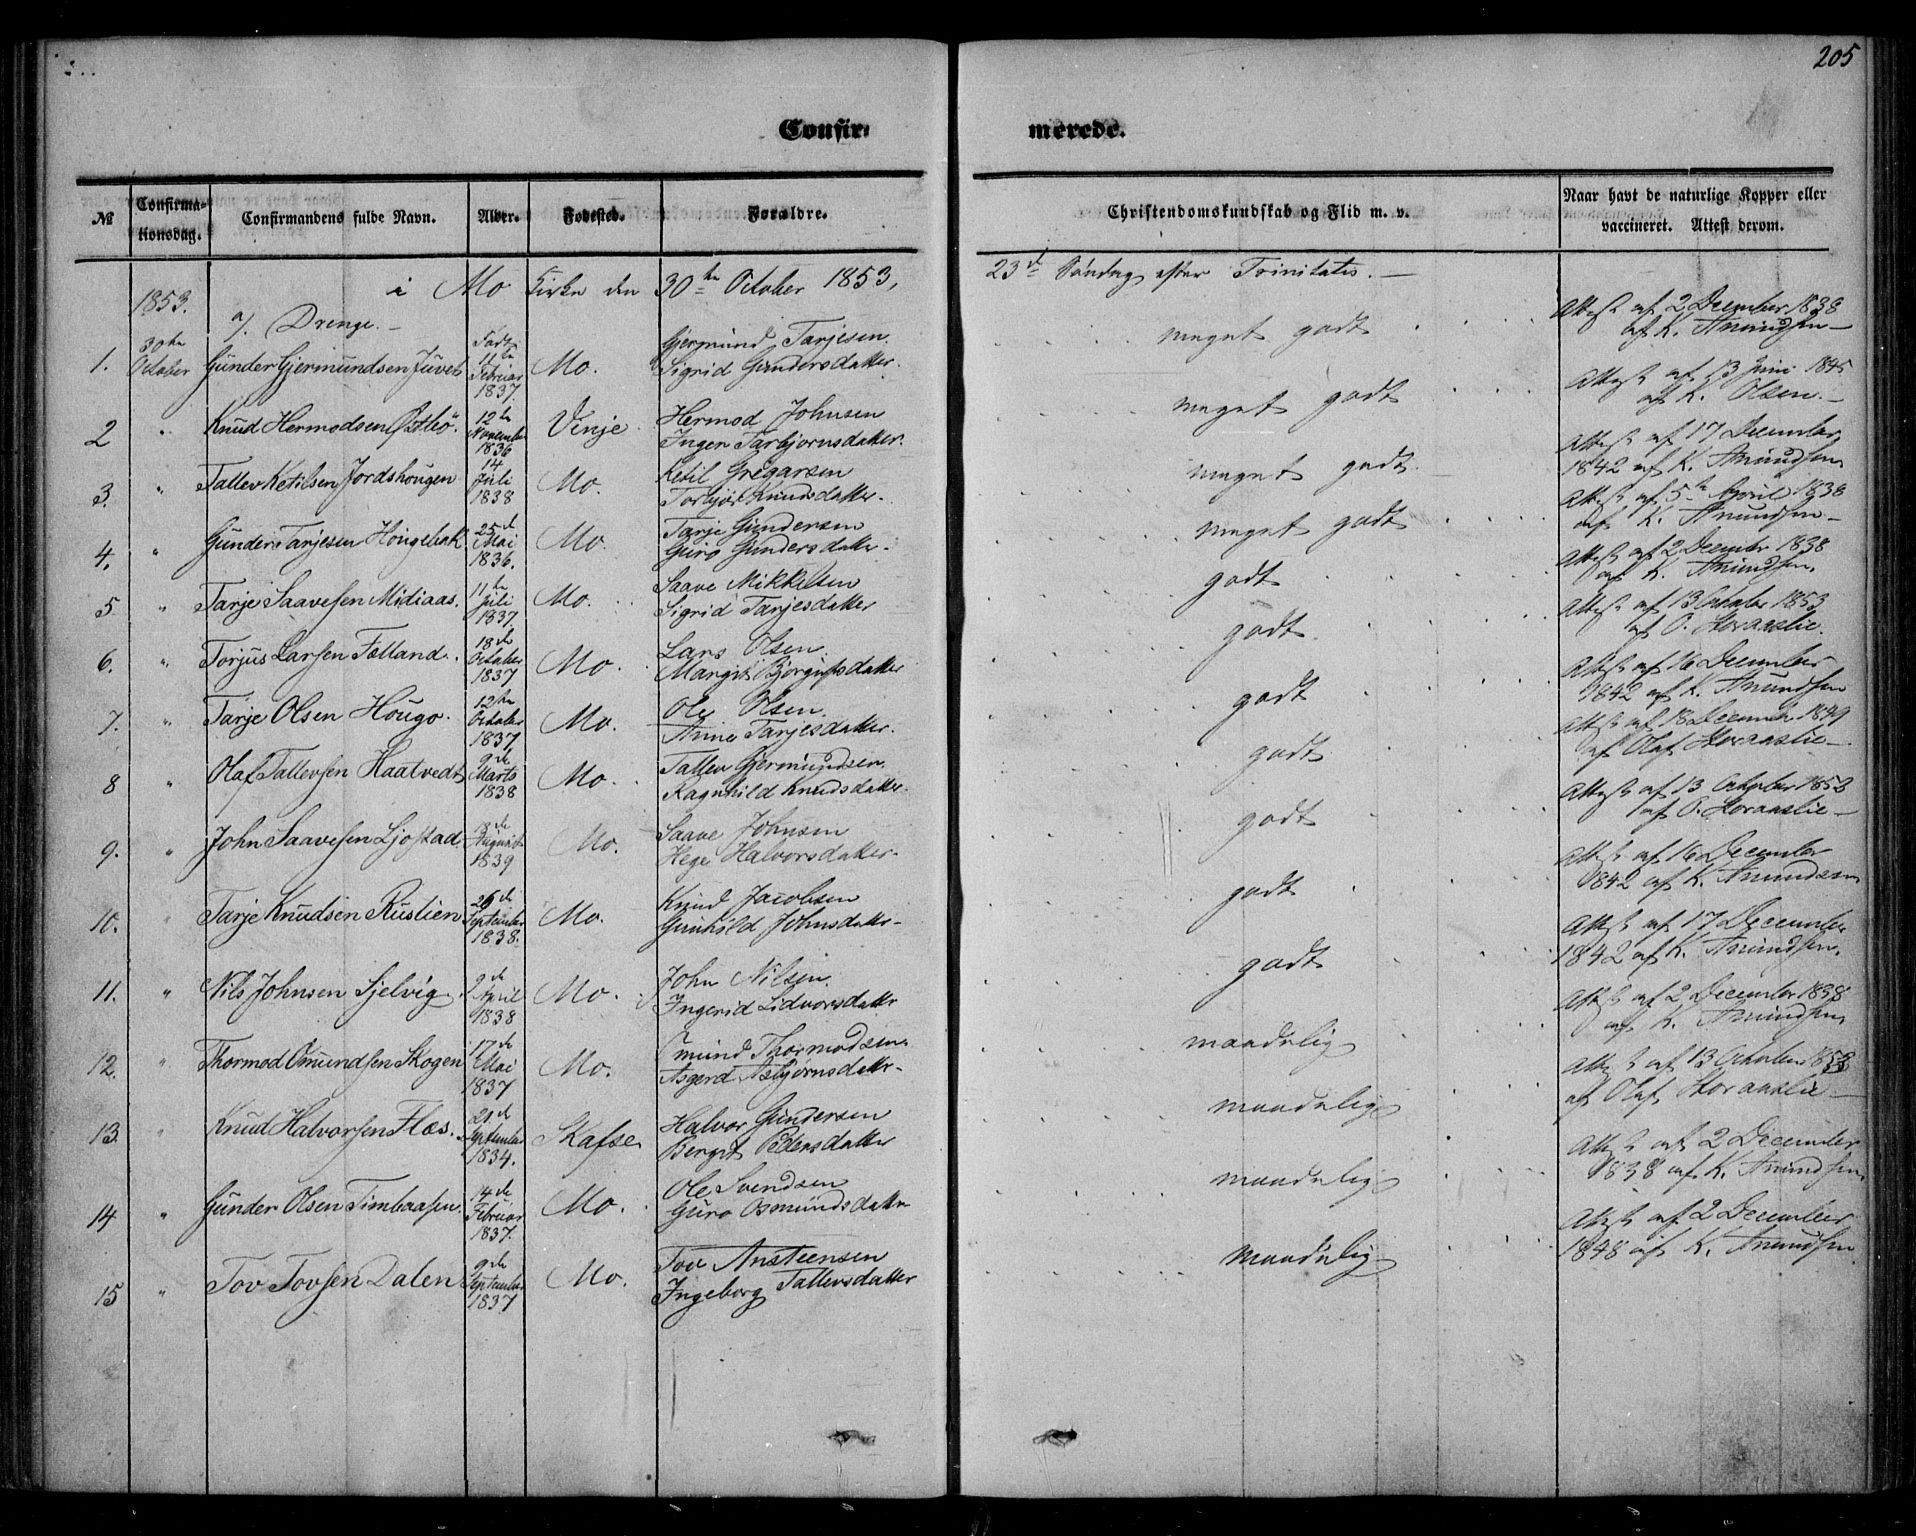 205
Confir= merede.
№ Confirma=tionsdag. Confirmandens fulde Navn. Alder. Fødested. Forældre. Christendomskundskab og Flid m. v. Naar havt de naturlige Kopper eller vaccineret. Attest derom.
1853. i Mo Kirke den 30te October 1853, 23de Søndag efter Trinitatis. —
a). Drenge. —
1. 30te October Gunder Gjermundsen Juvet Født 11te Februar 1837. Mo. Gjermund Tarjesen. Sigrid Gundersdatter. meget godt Attest af 2 December 1838 af K. Amundsen —
2 " Knud Hermodsen Østbø. 12te November 1836 Vinje Hermod Johnsen Inger Tarbjørnsdatter. meget godt Attest af 13 Juni 1845 af K. Olsen. —
3. " Tallev Ketilsen Jordshougen 14 Juli 1838 Mo. Ketil Gregarsen Torbjør Knudsdatter. meget godt Attest af 17 December 1842 af K. Amundsen
4. " Gunder Tarjesen Hougebak 25de Mai 1836. Mo. Tarje Gundersen Guro Gundersdatter. meget godt Attest af 5te April 1838 af K. Amundsen —
5 " Tarje Saavesen Midiaas. 11te Juli 1837 Mo. Saave Mikkelsen Sigrid Tarjesdatter godt Attest af 2 December 1838 af K. Amundsen.
6. " Torjus Larsen Felland. 18de October 1837 Mo. Lars Olsen. Margit Bjørgufsdatter godt Attest af 13 October 1853 af O. Storaaslie.
7. " Tarje Olsen Hougo. 12te October 1837 Mo. Ole Olsen. Anne Tarjesdatter. godt Attest af 16 December 1842 af K. Amundsen
8 " Olaf Tallevsen Haatvedt 9de Marts 1838 Mo. Tallev Gjermundsen. Ragnhild Knudsdatter. godt Attest af 18 December 1849 af Olaf Storaaslie —
9. " John Saavesen Ljostad. 18de August 1839 Mo. Saave Johnsen Hege Halvorsdatter. godt Attest af 13 October 1853 af O. Storaaslie —
10. " Tarje Knudsen Rustien 26de September 1838. Mo. Knud Jacobsen Gunhild Johnsdatter. godt Attest af 16 December 1842 af K. Amundsen
11. " Nils Johnsen Sjelvig 9de April 1838 Mo. John Nilsen. Ingerid Lidvorsdatter godt Attest af 17 December 1842 af K. Amundsen.
12. " Thormod Omundsen Skogen 17de Mai 1837 Mo. Omund Thormodsen Asgerd Asbjørnsdatter. maadelig Attest af 2 December 1838 af K. Amundsen
13. " Knud Halvorsen Flæs. 21de September 1834. Skafse Halvor Gundersen Bergit Pedersdatter maadelig Attest af 13 October 1853 af Olaf Storaaslie —
14 " Gunder Olsen Timbaasen. 14de Februar 1837. Mo. Ole Svendsen Guro Osmundsdatter maadelig Attest af 2 December 1838 af K. Amundsen
15 " Tov Tovsen Dalen 9de September 1837 Mo. Tov Ansteensen Ingeborg Tallevsdatter maadelig Attest af 2 December 1848 af K. Amundsen